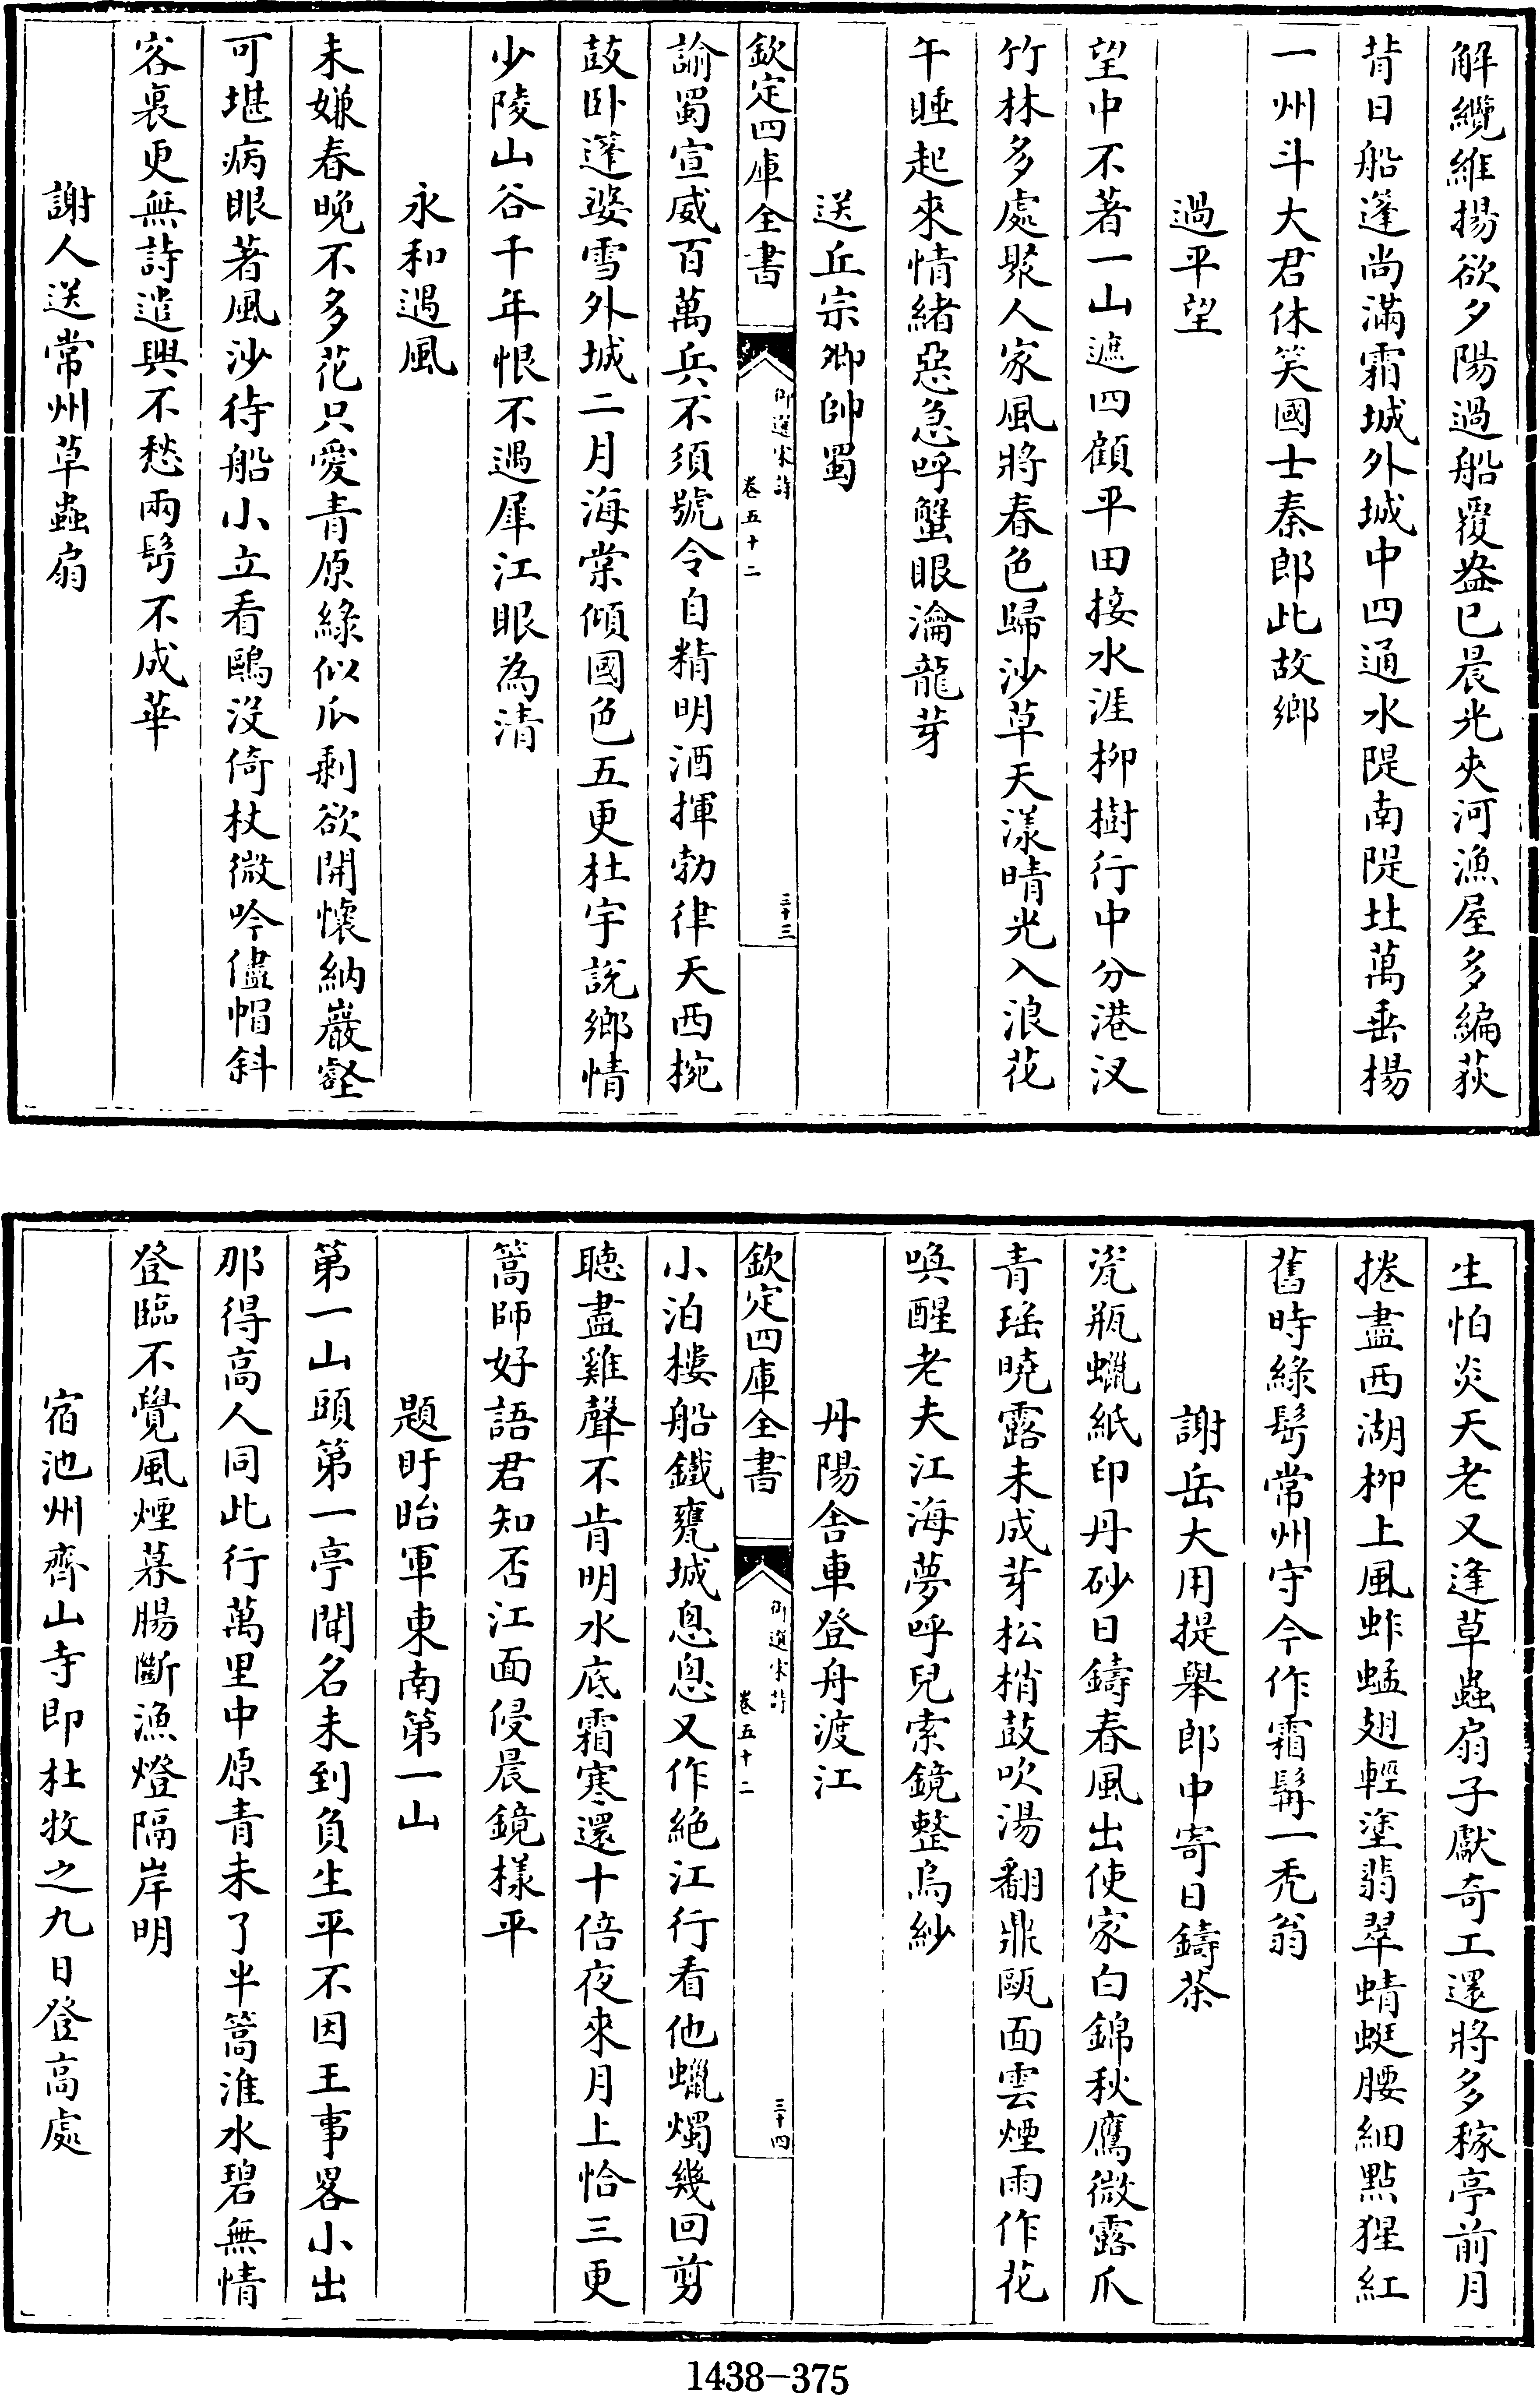 解纜維揚欲夕陽過船覆盎已晨光夾河漁屋多編荻
背日船篷尚滿霜城外城中四通水隄南隄北萬垂楊
一州斗大君休笑國士秦郎此故鄉
過平望
望中不著一山遮四顧平田接水涯柳樹行中分港汊
竹林多處聚人家風將春色歸沙草天漾晴光入浪花
午睡起來情緒惡急呼蟹眼瀹龍芽
送丘宗卿帥蜀
欽定四庫全書
御選宋詩
卷五十二
三十三
諭蜀宣威百萬兵不須號令自精明酒揮勃律天西捥
鼓卧蓬婆雪外城二月海棠傾國色五更杜宇說鄉情
少陵山谷千年恨不遇犀江眼為清
永和遇風
未嫌春晚不多花只愛青原綠似瓜剩欲開懷納巖壑
可堪病眼著風沙待船小立看鷗沒倚杖微吟儘帽斜
客裏更無詩遣興不愁兩髩不成華
謝人送常州草蟲扇
生怕炎天老又逢草蟲扇子獻奇工還將多稼亭前月
捲盡西湖柳上風蚱蜢翅輕塗翡翠蜻蜓腰細點猩紅
舊時綠髩常州守今作霜髯一禿翁
謝岳大用提舉郎中寄日鑄茶
瓷瓶蠟紙印丹砂日鑄春風出使家白錦秋鷹微露爪
青瑤曉露未成芽松梢鼓吹湯翻鼎甌面雲煙雨作花
喚醒老夫江海夢呼兒索鏡整烏紗
丹陽舍車登舟渡江
欽定四庫全書
御選宋詩
卷五十二
三十四
小泊樓船鐵甕城息息又作絶江行看他蠟燭幾回剪
聽盡雞聲不肯明水底霜寒還十倍夜來月上恰三更
篙師好語君知否江面侵晨鏡樣平
題盱眙軍東南第一山
第一山頭第一亭聞名未到負生平不因王事畧小出
那得高人同此行萬里中原青未了半篙淮水碧無情
登臨不覺風煙暮腸斷漁燈隔岸明
宿池州齊山寺即杜牧之九日登高處
1438-375